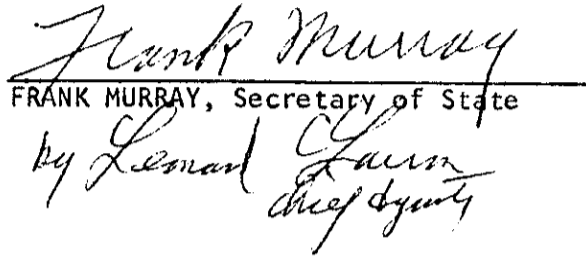 Frank Murray
FRANK MURRAY, Secretary of State
by Leonard C Larson
chief deputy